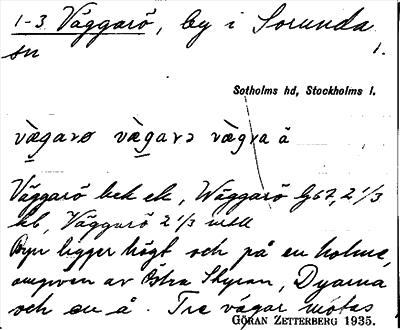 1-3. Väggarö, by i Sorunda
sn 1.
Sotholms hd, Stockholms l.
væ̀garø væ̀garə væ̀gra å
Väggarö bek ek, Wäggarö G67, 2 1/3
kb, Väggarö 2 1/3 mtl
Byn ligger högt och på en holme,
omgiven av Östra Styran, Dyarna
och en å. Tre vägar mötas
GÖRAN ZETTERBERG 1935.